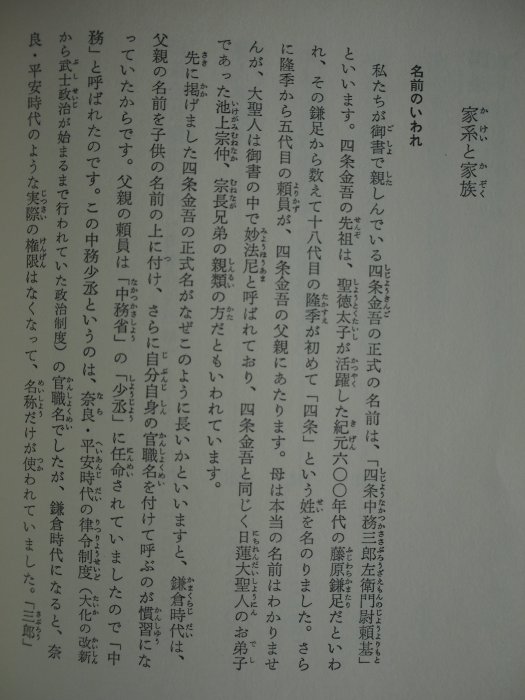 家系と家族
名前のいわれ
私たちが御書で親しんでいる四条金吾の正式の名前は、「四条中務三郎左衛門尉頼基」
といいます。四条金吾の先祖は、聖徳太子が活躍した紀元六〇〇年代の藤原鎌足だといわ
れ、その鎌足から数えて十八代目の隆季が初めて「四条」という姓を名のりました。さら
に隆季から五代目の頼員が、四条金吾の父親にあたります。母は本当の名前はわかりませ
んが、大聖人は御書の中で妙法尼と呼ばれており、四条金吾と同じく日蓮大聖人のお弟子
であった池上宗仲、宗長兄弟の親類の方だともいわれています。
先に掲げました四条金吾の正式名がなぜこのように長いかといいますと、鎌倉時代は、
父親の名前を子供の名前の上に付け、さらに自分自身の官職名を付けて呼ぶのが慣習にな
っていたからです。父親の頼員は「中務省」の「少丞」に任命されていましたので「中
務」と呼ばれたのです。この中務少丞というのは、奈良・平安時代の律令制度（大化の改新
から武士政治が始まるまで行われていた政治制度）の官職名でしたが、鎌倉時代になると、奈
良・平安時代のような実際の権限はなくなって、名称だけが使われていました。「三郎」